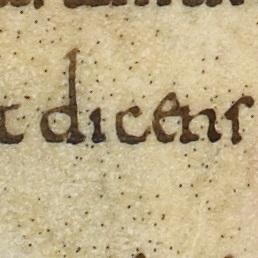 t dicens